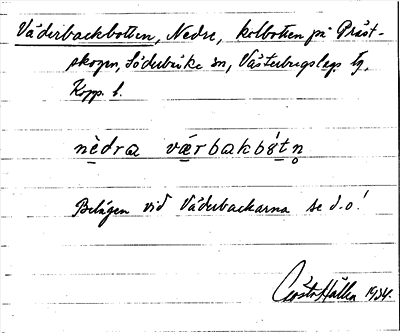 Väderbackbotten, Nedre, kolbotten på Präst-
skogen, Söderbärke sn, Västerbergslags tg,
Kopp. l.
nèdra vä̀rbakbòtn̥
Belägen vid Väderbackarna se d.o!
1934.